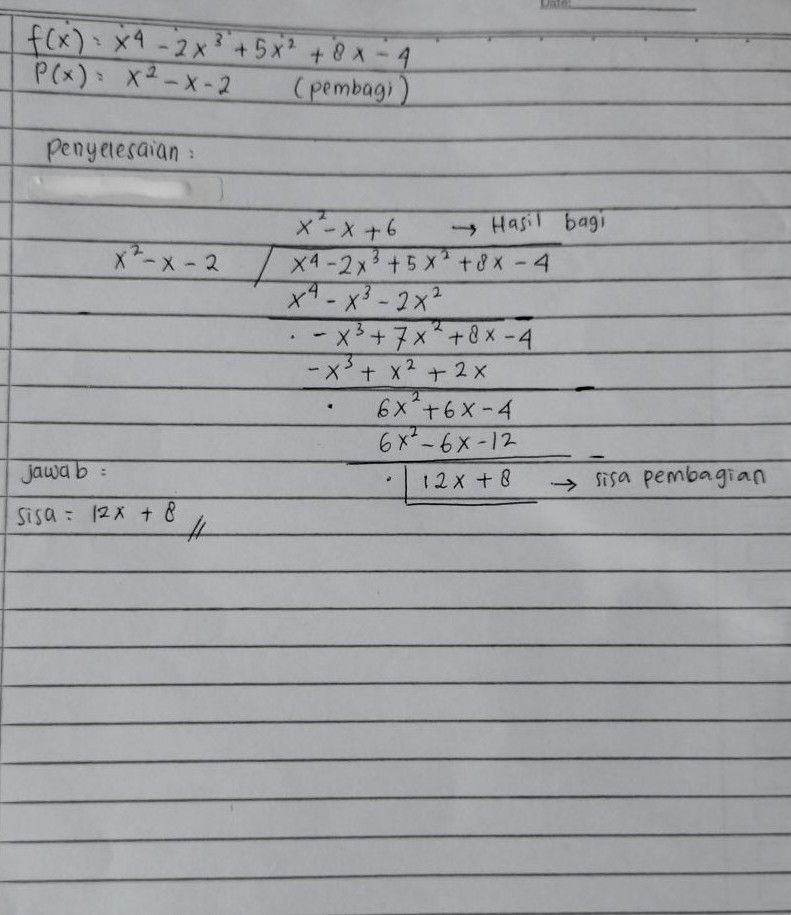 Date:
f(x) = x⁴ - 2x³ + 5x² + 8x - 4
P(x) = x² - x - 2 (pembagi)
Penyelesaian :
x² - x + 6 → Hasil bagi
x² - x - 2 / x⁴ - 2x³ + 5x² + 8x - 4
x⁴ - x³ - 2x² -
- x³ + 7x² + 8x - 4
- x³ + x² + 2x -
6x² + 6x - 4
6x² - 6x - 12 -
12x + 8 → sisa pembagian
Jawab :
sisa = 12x + 8 //